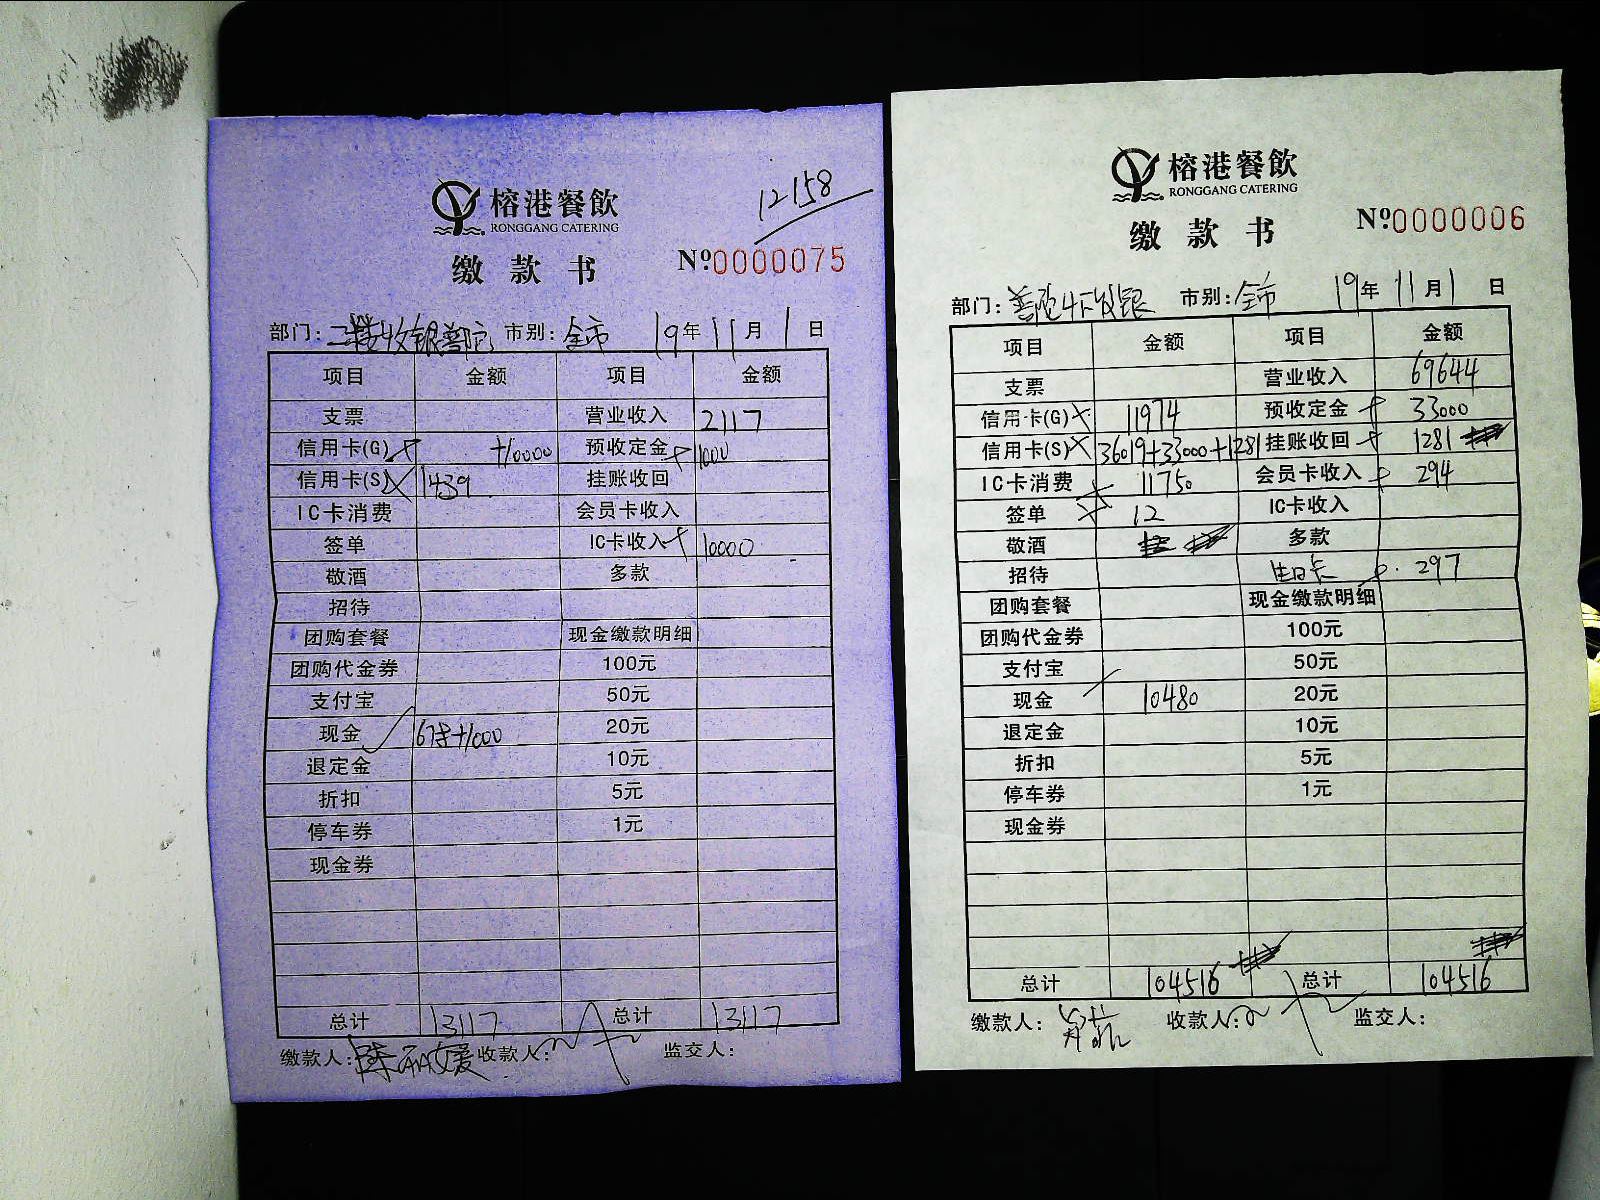 榕港餐飲
RONGGANG CATERING
12158
缴款书
Nº0000075
部门: 市别:全市 19年11月1日
项目 金额 项目 金额
支票 营业收入 2117
信用卡(G) +10000 预收定金 1000
信用卡(S) 1439 挂账收回
IC卡消费 会员卡收入
签单 IC卡收入 10000
敬酒 多款
招待
团购套餐 现金缴款明细
团购代金券 100元
支付宝 50元
现金 678+1000 20元
退定金 10元
折扣 5元
停车券 1元
现金券
总计 13117 总计 13117
缴款人: 收款人: 监交人:
榕港餐飲
RONGGANG CATERING
缴款书
Nº0000006
部门: 市别:全市 19年11月1日
项目 金额 项目 金额
支票 营业收入 69644
信用卡(G) 11974 预收定金 33000
信用卡(S) 36019+33000+1281 挂账收回 1281
IC卡消费 11750 会员卡收入 294
签单 12 IC卡收入
敬酒 多款
招待 生日卡 297
团购套餐 现金缴款明细
团购代金券 100元
支付宝 50元
现金 10480 20元
退定金 10元
折扣 5元
停车券 1元
现金券
总计 104516 总计 104516
缴款人: 收款人: 监交人: